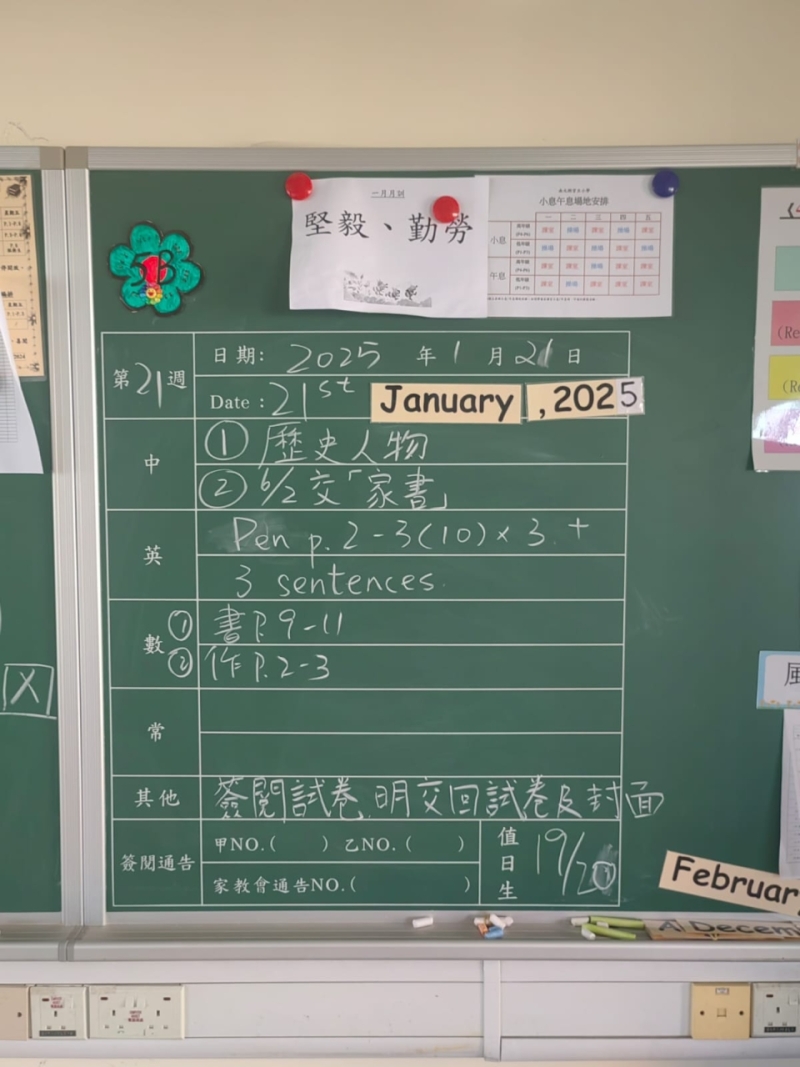 一月月訓
堅毅、勤勞
小息午息場地安排
一 二 三 四 五
小息
午息
3B
第21週
日期: 2025 年 1 月 21 日
Date : 21st January , 2025
中
① 歷史人物
② 6/2交「家書」
英
Pen p. 2-3(10)×3 +
3 sentences.
數
① 書P.9-11
② 作P.2-3
常
其他
簽閱試卷,明交回試卷及封面
簽閱通告
甲NO.( ) 乙NO.( )
家教會通告NO.( )
值日生
19/20
X
(Re
(Re
風
Februar
Decem